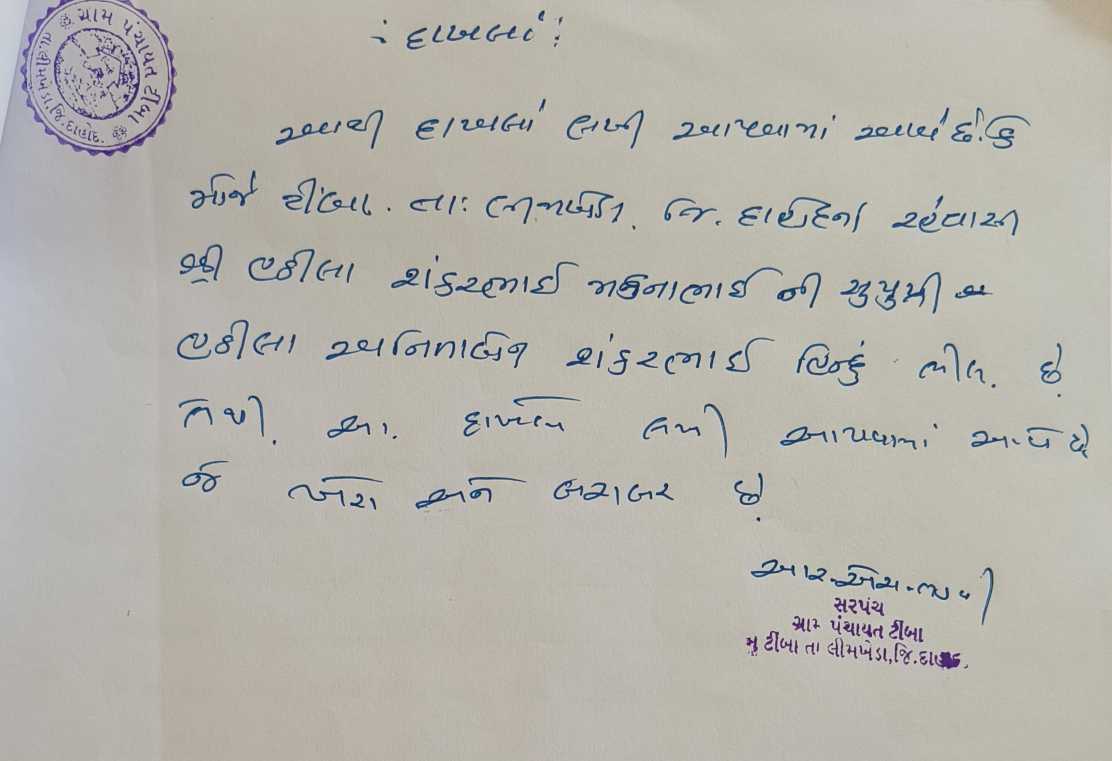 ગ્રામ પંચાયત ટીંબા
:દાખલો:
આથી દાખલો લખી આપવામાં આવે છે.કે
મોજે ટીંબા. તા: લીમખેડા. જિ. દાહોદના રહેવાસી
શ્રી હઠીલા શંકરભાઈ મકનાભાઈ ની સુપુત્રી
હઠીલા અનિતાબેન શંકરભાઈ હિન્દુ ભીલ. છે.
તેથી. આ. દાખલો લખી આપવામાં આવે છે
જે ખરો અને બરાબર છે.
સરપંચ
ગ્રામ પંચાયત ટીંબા
મુ ટીંબા તા લીમખેડા,જિ.દાહોદ.